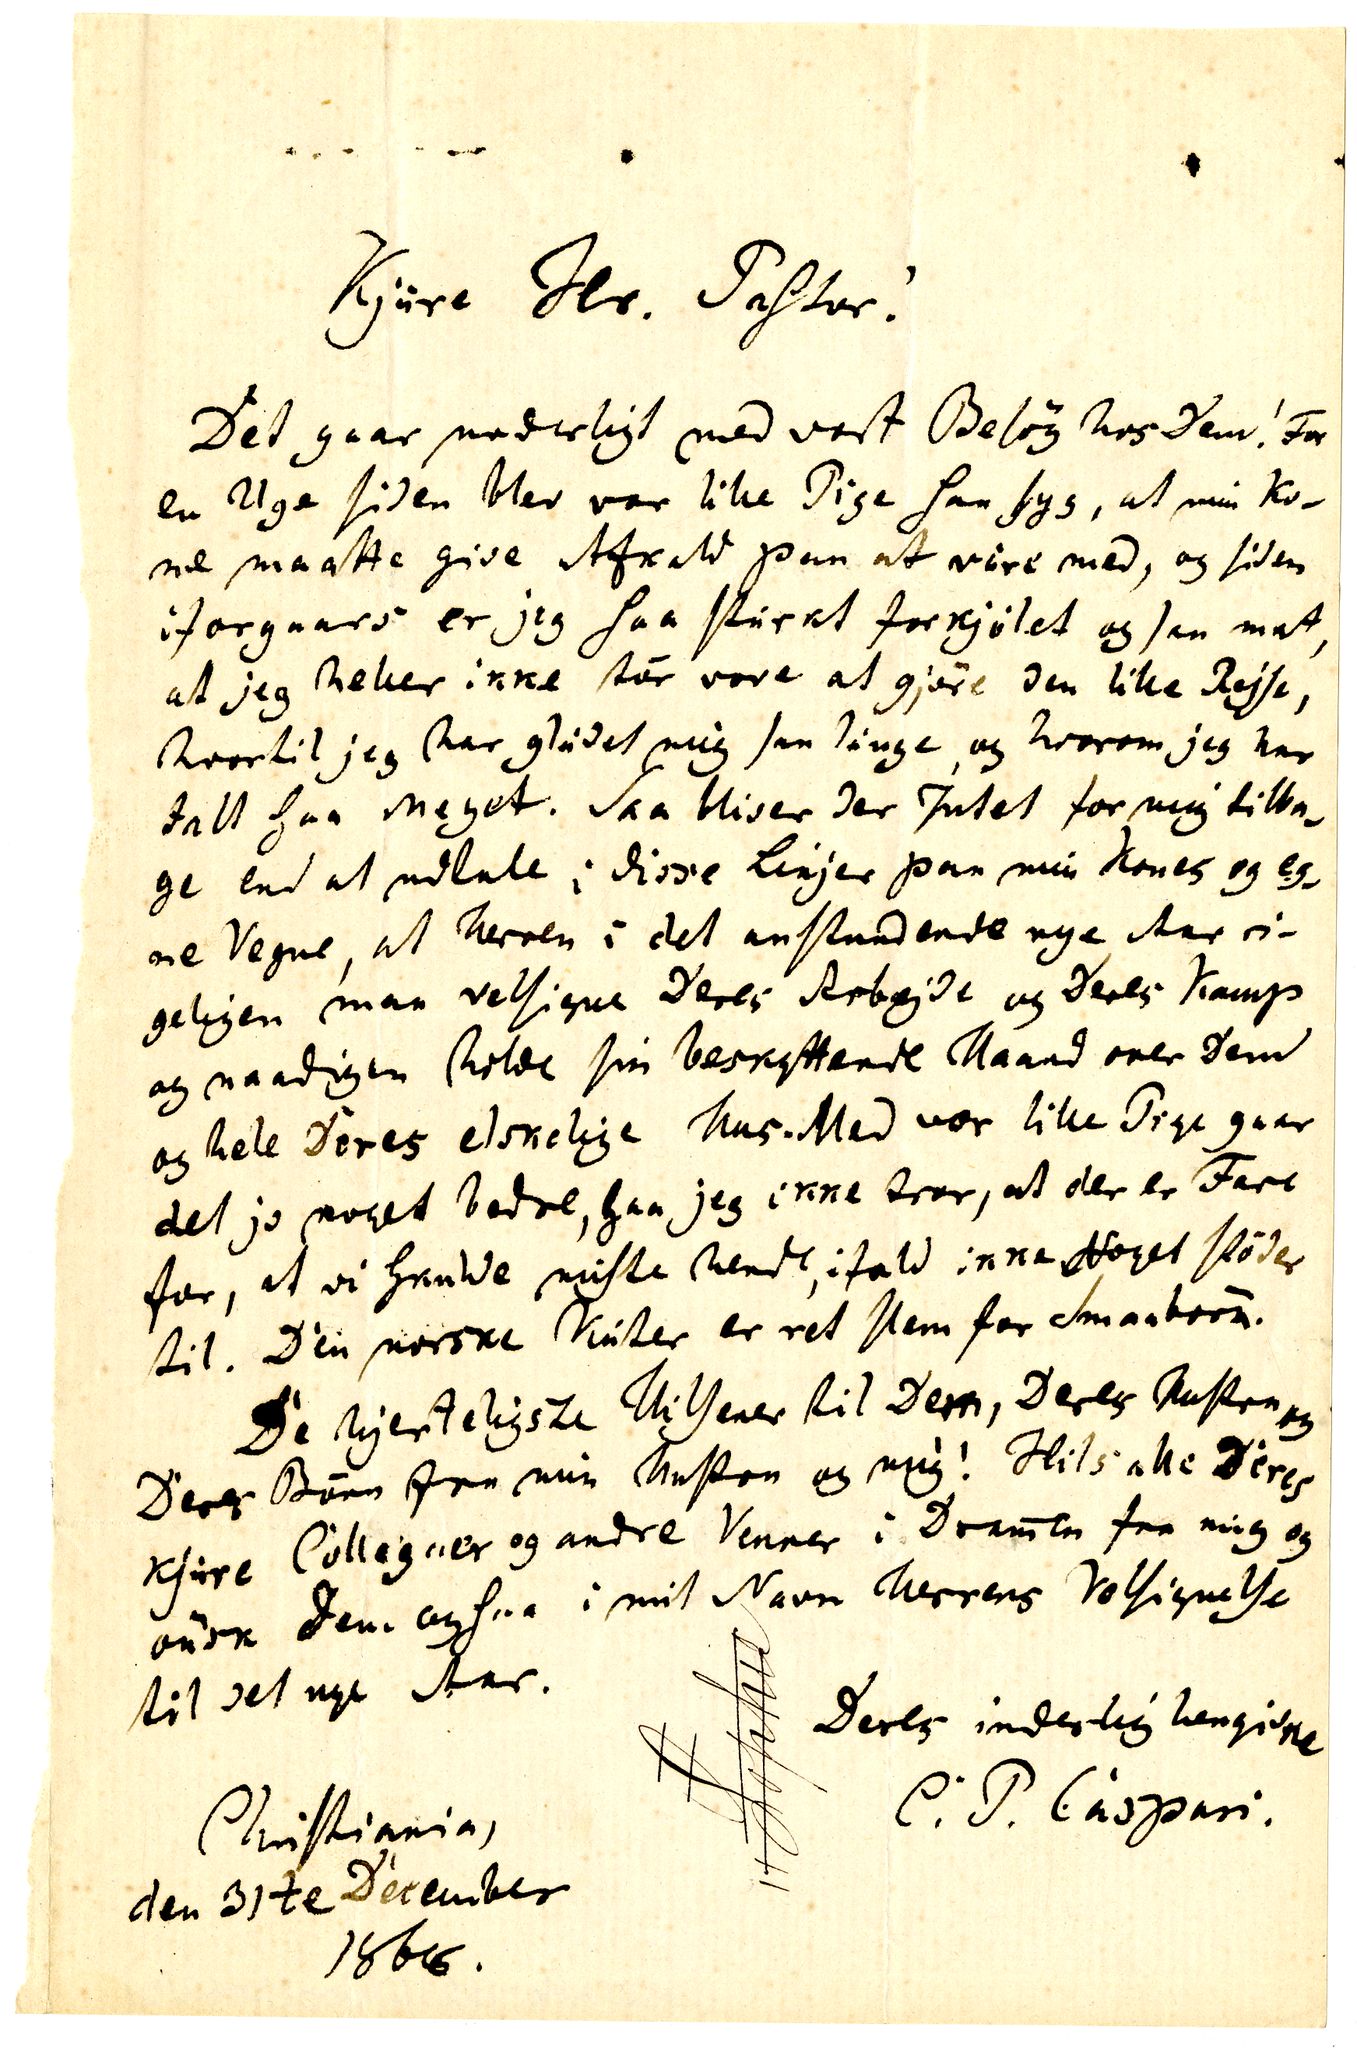 Kjäre Hr. Pastor!
Det gaar underligt med vort Besög hos Dem! For
en Uge siden blev vor lille Pige saa syg, at min Ko-
ne maatte give Afkald paa at väre med, og siden
iforgaars er jeg saa stärkt forkjölet og saa mat,
at jeg heller ikke tör vove at gjöre den lille Rejse,
hvortil jeg har glädet mig saa länge, og hvorom jeg har
talt saa meget. Saa bliver der Intet for mig tilba-
ge end at udtale i disse Linjer paa min Kones og eg-
ne Vegne, at Herren i det anstundende nye Aar ri-
geligen maa velsigne Deres Arbejde og Deres Kamp
og naadigen holde sin beskyttende Haand over Dem
og hele Deres elskelige Hus. Med vor lille Pige gaar
det jo noget bedre, saa jeg ikke tror, at der er Fare
for, at vi skulde miste hende, ifald ikke Noget stöder
til. Den norske Vinter er ret slem for Smaabörn.
De hjerteligste Hilsener til Dem, Deres Hustru og
Deres Börn fra min Hustru og mig! Hils alle Deres
kjäre Collegaer og andre Venner i Dramen fra mig og
önsk Dem ogsaa i mit Navn Herrens Velsignelse
til det nye Aar.
Deres inderlig hengivne
C. P. Caspari.
Christiania,
den 31te December
1866.